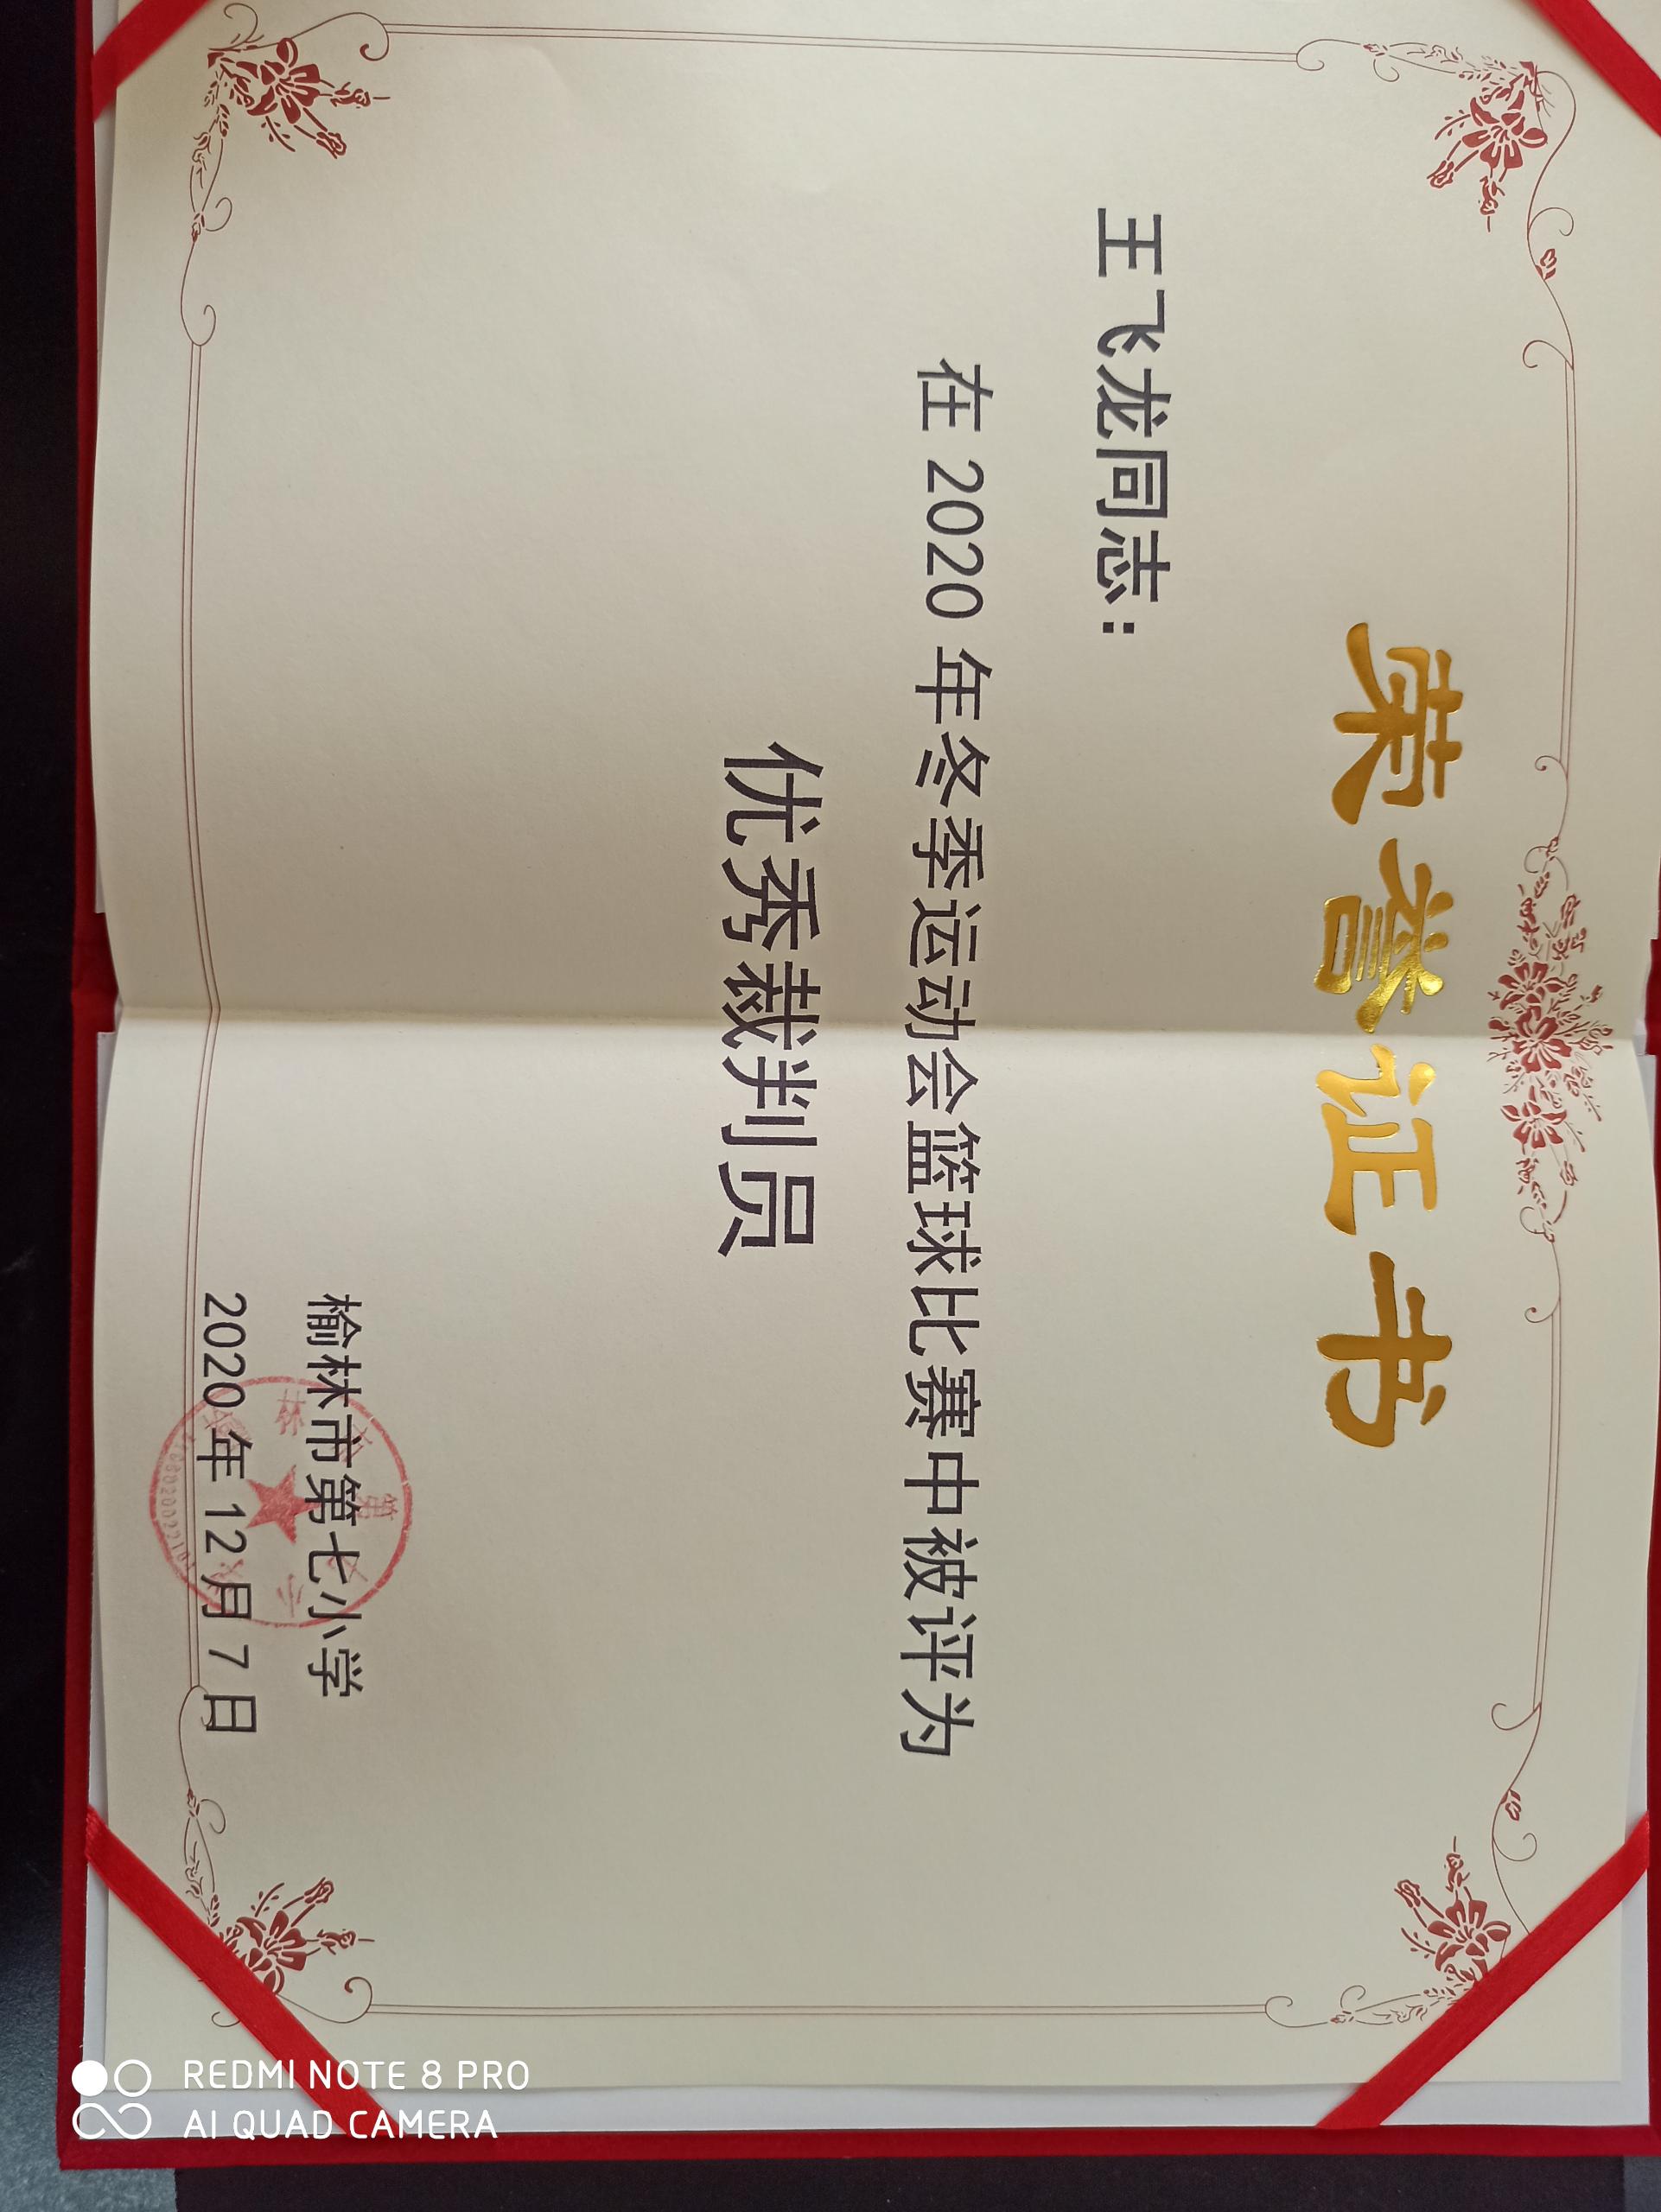 荣誉证书
王飞龙同志：
在 2020 年冬季运动会篮球比赛中被评为
优秀裁判员
榆林市第七小学
2020 年 12 月 7 日
REDMI NOTE 8 PRO
AI QUAD CAMERA